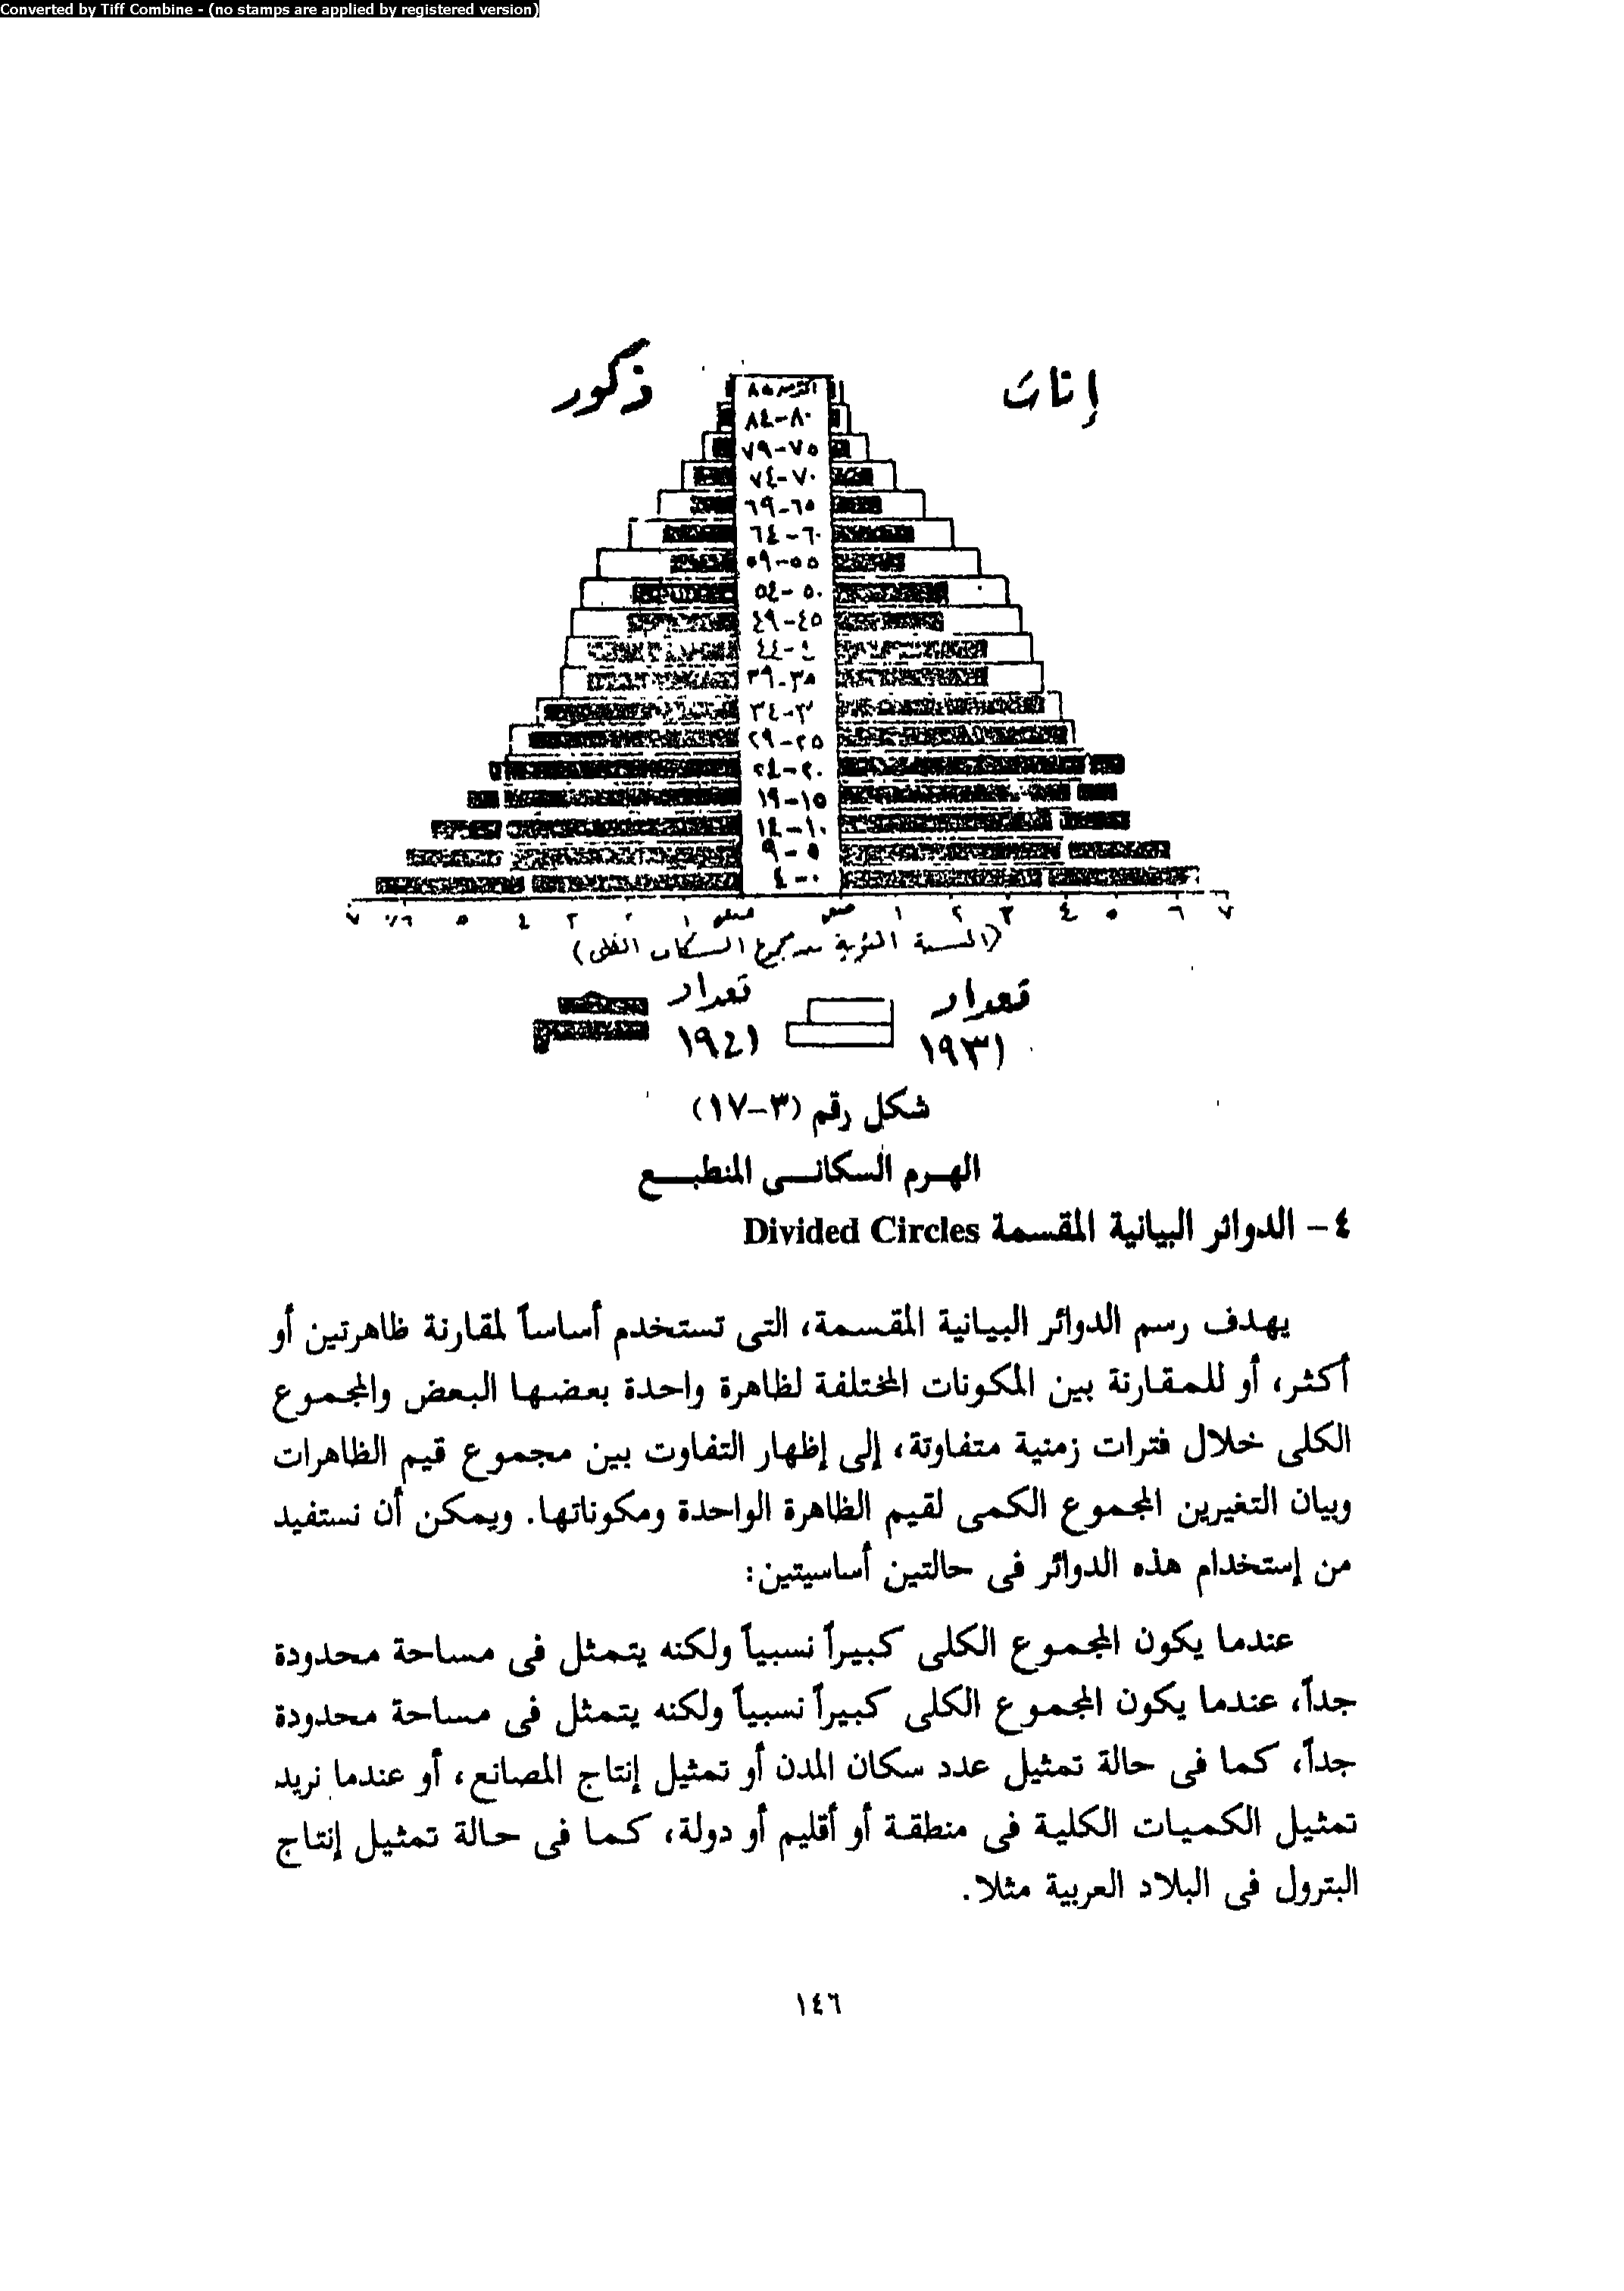 Converted by Tiff Combine - (no stamps are applied by registered version)
ذكور
إناث
٨٤-٨٠
٧٩-٧٥
٧٤-٧٠
٦٩-٦٥
٦٤-٦٠
٥٩-٥٥
٥٤-٥٠
٤٩-٤٥
٤٤-٤
٣٩-٣٥
٣٤-٣٠
٢٩-٢٥
٢٤-٢٠
١٩-١٥
١٤-١٠
٩-٥
٤-٠
٧ ٦٪ ٥ ٤ ٣ ٢ ١ صفر صفر ١ ٢ ٣ ٤ ٥ ٦ ٧
(النسبة المئوية من مجموع السكان
تعداد ١٩٣١
تعداد ١٩٤١
شكل رقم (٣-١٧)
الهرم السكانى المنطبع
٤- الدوائر البيانية المقسمة Divided Circles
يهدف رسم الدوائر البيانية المقسمة، التى تستخدم أساساً لمقارنة ظاهرتين أو
أكثر، أو للمقارنة بين المكونات المختلفة لظاهرة واحدة بعضها البعض والمجموع
الكلى خلال فترات زمنية متفاوتة، إلى إظهار التفاوت بين مجموع قيم الظاهرات
وبيان التغيرين المجموع الكمى لقيم الظاهرة الواحدة ومكوناتها. ويمكن أن نستفيد
من إستخدام هذه الدوائر فى حالتين أساسيتين:
عندما يكون المجموع الكلى كبيراً نسبياً ولكنه يتمثل فى مساحة محدودة
جداً، عندما يكون المجموع الكلى كبيراً نسبياً ولكنه يتمثل فى مساحة محدودة
جداً، كما فى حالة تمثيل عدد سكان المدن أو تمثيل إنتاج المصانع، أو عندما نريد
تمثيل الكميات الكلية فى منطقة أو أقليم أو دولة، كما فى حالة تمثيل إنتاج
البترول فى البلاد العربية مثلا.
١٤٦